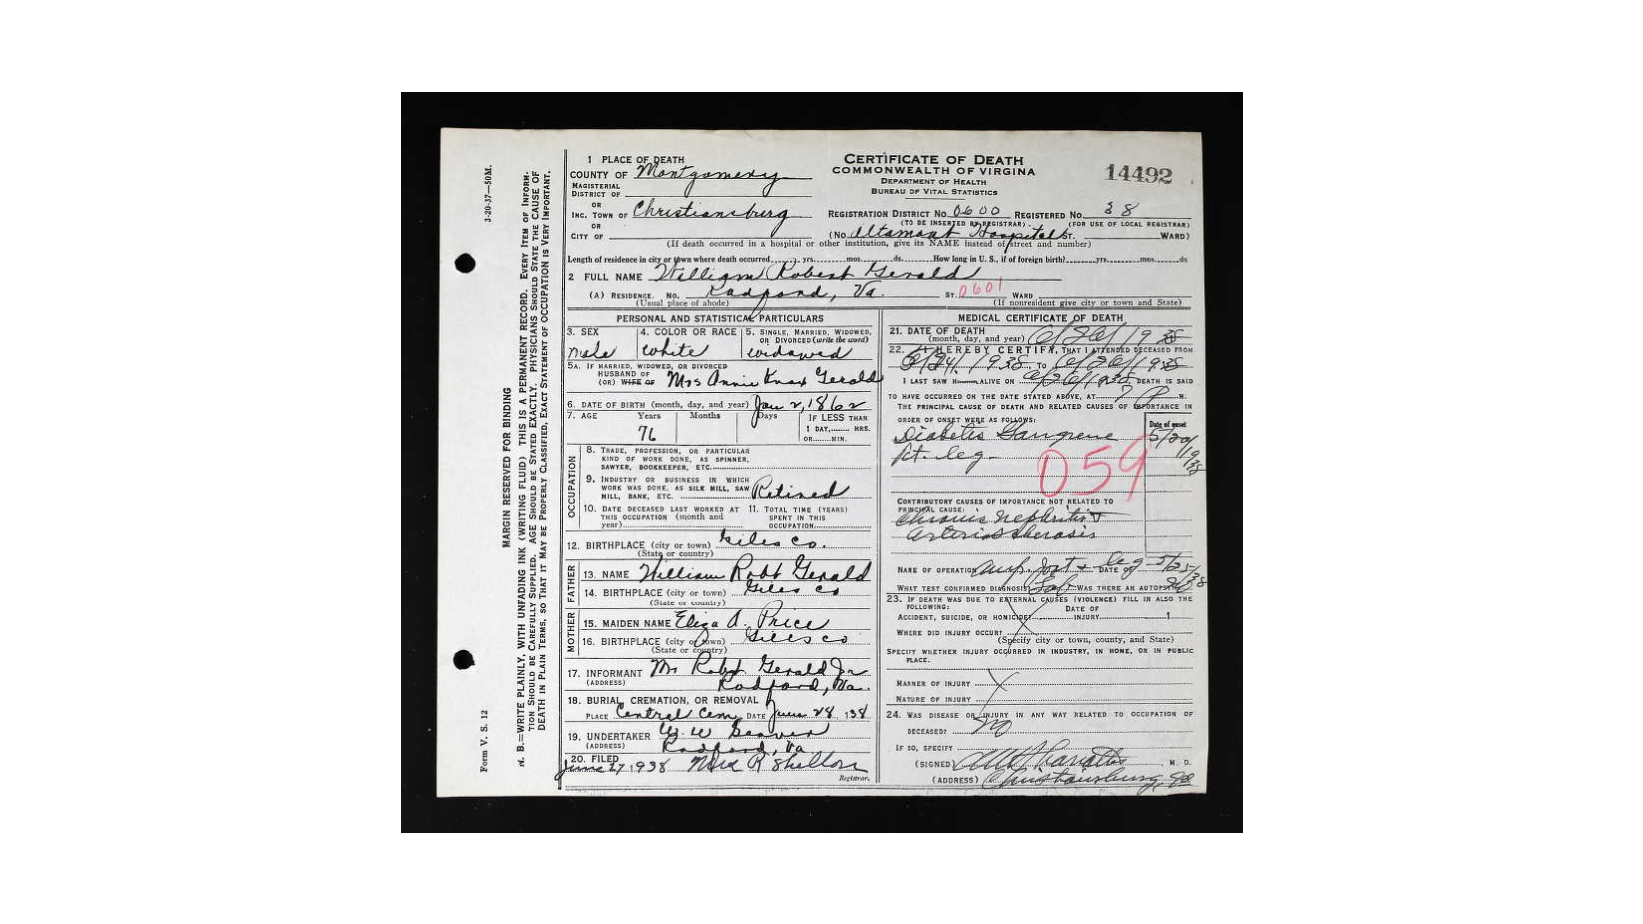 1 PLACE OF DEATH
COUNTY OF Montgomery
MAGISTERIAL
DISTRICT OF
OR
INC. TOWN OF Christiansburg
OR
CITY OF
CERTIFICATE OF DEATH
COMMONWEALTH OF VIRGINIA
DEPARTMENT OF HEALTH
BUREAU OF VITAL STATISTICS
14492
REGISTRATION DISTRICT No. 0600 REGISTERED No. 38
(TO BE INSERTED BY REGISTRAR) (FOR USE OF LOCAL REGISTRAR)
(No. Altamont Hospital ST. WARD)
(If death occurred in a hospital or other institution, give its NAME instead of street and number)
Length of residence in city or town where death occurred yrs. mos. ds. How long in U. S., if of foreign birth? yrs. mos. ds
2 FULL NAME William Robert Gerald
(A) RESIDENCE. No. Radford, Va. ST. 0601 WARD
(Usual place of abode) (If nonresident give city or town and State)
PERSONAL AND STATISTICAL PARTICULARS
3. SEX 4. COLOR OR RACE 5. SINGLE, MARRIED, WIDOWED,
OR DIVORCED (write the word)
male white widowed
5A. IF MARRIED, WIDOWED, OR DIVORCED
HUSBAND OF
(OR) WIFE OF Mrs Annie Knox Gerald
6. DATE OF BIRTH (month, day, and year) Jan 2, 1862
7. AGE Years Months Days IF LESS THAN
1 DAY, HRS.
OR MIN.
76
OCCUPATION
8. TRADE, PROFESSION, OR PARTICULAR
KIND OF WORK DONE, AS SPINNER,
SAWYER, BOOKKEEPER, ETC.
9. INDUSTRY OR BUSINESS IN WHICH
WORK WAS DONE, AS SILK MILL, SAW
MILL, BANK, ETC. Retired
10. DATE DECEASED LAST WORKED AT
THIS OCCUPATION (month and
year)
11. TOTAL TIME (YEARS)
SPENT IN THIS
OCCUPATION
12. BIRTHPLACE (city or town) Giles Co.
(State or country)
FATHER
13. NAME William Robt Gerald
14. BIRTHPLACE (city or town) Giles Co
(State or country)
MOTHER
15. MAIDEN NAME Eliza A. Price
16. BIRTHPLACE (city or town) Giles Co
(State or country)
17. INFORMANT Mr Robt Gerald Jr
(ADDRESS) Radford, Va.
18. BURIAL, CREMATION, OR REMOVAL
PLACE Central Cem DATE June 28 1938
19. UNDERTAKER W. W. Seaver
(ADDRESS) Radford, Va
20. FILED
June 27 1938 R Shelton
Registrar.
MEDICAL CERTIFICATE OF DEATH
21. DATE OF DEATH
(month, day, and year) 6/26/1938
22. I HEREBY CERTIFY, THAT I ATTENDED DECEASED FROM
5/24/1938 TO 6/26/1938
I LAST SAW H ALIVE ON 6/26/1938 DEATH IS SAID
TO HAVE OCCURRED ON THE DATE STATED ABOVE, AT 7 P M.
THE PRINCIPAL CAUSE OF DEATH AND RELATED CAUSES OF IMPORTANCE IN
ORDER OF ONSET WERE AS FOLLOWS:
Date of onset
Diabetis Gangrene 5/20/1938
rt. leg
059
CONTRIBUTORY CAUSES OF IMPORTANCE NOT RELATED TO
PRINCIPAL CAUSE:
Chronic nephritis &
arteriosclerosis
NAME OF OPERATION Amp. foot & leg DATE OF 5/25/38
WHAT TEST CONFIRMED DIAGNOSIS? Lab WAS THERE AN AUTOPSY? no
23. IF DEATH WAS DUE TO EXTERNAL CAUSES (VIOLENCE) FILL IN ALSO THE
FOLLOWING:
DATE OF
ACCIDENT, SUICIDE, OR HOMICIDE? INJURY 1
WHERE DID INJURY OCCUR?
(Specify city or town, county, and State)
SPECIFY WHETHER INJURY OCCURRED IN INDUSTRY, IN HOME, OR IN PUBLIC
PLACE.
MANNER OF INJURY
NATURE OF INJURY
24. WAS DISEASE OR INJURY IN ANY WAY RELATED TO OCCUPATION OF
DECEASED? no
IF SO, SPECIFY
(SIGNED) M. D.
(ADDRESS) Christiansburg, Va
3-20-37—50M.
Form V. S. 12
MARGIN RESERVED FOR BINDING
N. B.—WRITE PLAINLY, WITH UNFADING INK (WRITING FLUID) THIS IS A PERMANENT RECORD. EVERY ITEM OF INFORM-
TION SHOULD BE CAREFULLY SUPPLIED. AGE SHOULD BE STATED EXACTLY. PHYSICIANS SHOULD STATE THE CAUSE OF
DEATH IN PLAIN TERMS, SO THAT IT MAY BE PROPERLY CLASSIFIED, EXACT STATEMENT OF OCCUPATION IS VERY IMPORTANT.